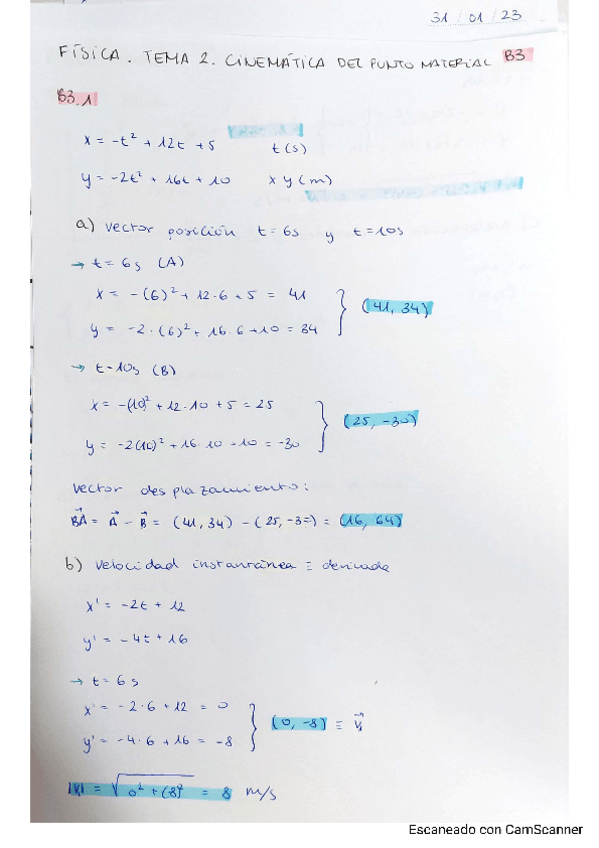 31/01/23
FÍSICA. TEMA 2. CINEMÁTICA DEL PUNTO MATERIAL B3
B3.1
x = -t² + 12t + 5 t(s)
y = -2t² + 16t + 10 x y (m)
a) vector posición t=6s y t=10s
→ t = 6s (A)
x = -(6)² + 12·6 + 5 = 41
(41, 34)
y = -2·(6)² + 16·6 + 10 = 34
→ t=10s (B)
x = -(10)² + 12·10 + 5 = 25
(25, -30)
y = -2(10)² + 16·10 + 10 = -30
vector desplazamiento:
BA = A - B = (41, 34) - (25, -30) = (16, 64)
b) velocidad instantánea ≡ derivada
x' = -2t + 12
y' = -4t + 16
→ t = 6s
x' = -2·6 + 12 = 0
(0, -8) ≡ V₁
y' = -4·6 + 16 = -8
|V₁| = √0² + (-8)² = 8 m/s
Escaneado con CamScanner